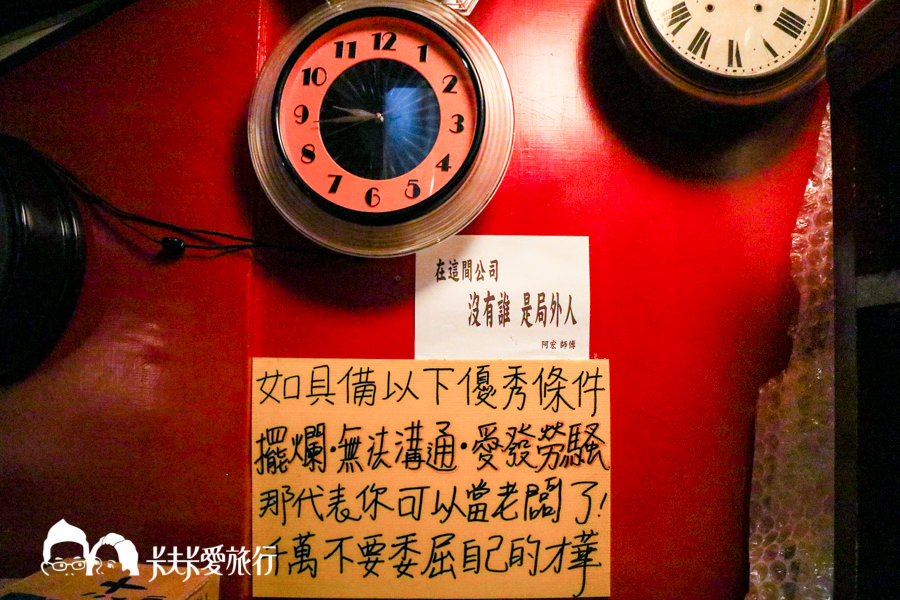 12
11 1
10 2
9 3
8 4
7 5
6
在這間公司
沒有誰 是局外人
阿宏 師傅
如具備以下優秀條件
擺爛·無法溝通·愛發勞騷
那代表你可以當老闆了!
千萬不要委屈自己的才華
卡夫卡愛旅行